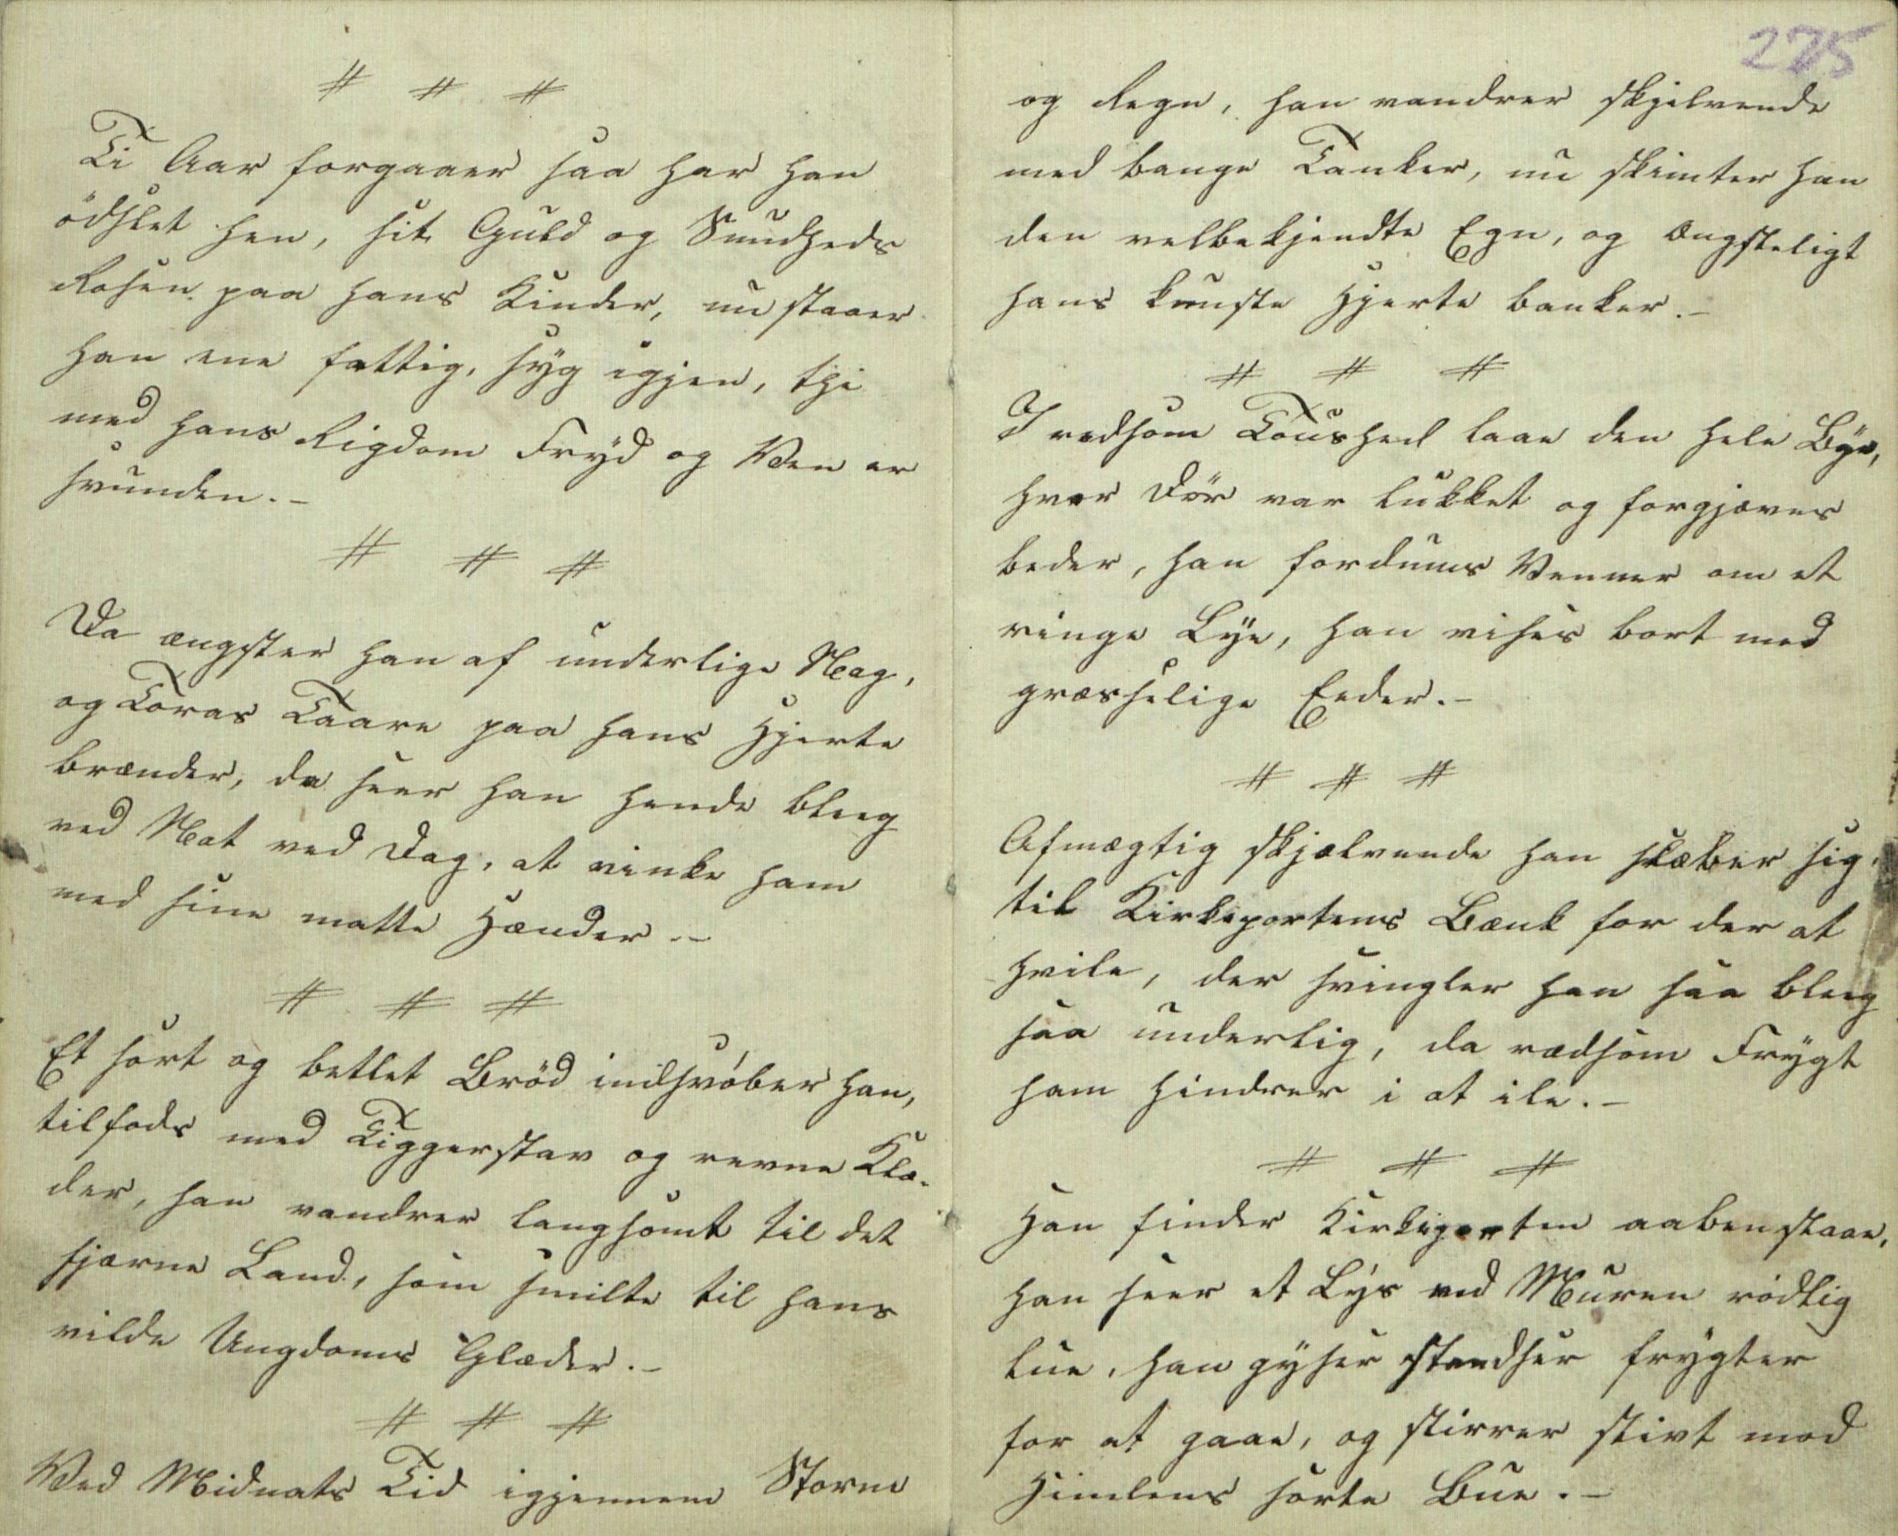 # # #
Ti Aar forgaaer saa har han
ödslet hen, sit Guld og Sundheds
Rosen paa hans Kinder, nu staaer
han ene fattig, syg igjen, thi
med hans Rigdom Fryd og Ven er
svunden.-
# # #
Da ængster han af underlige Nag,
og Toras Taare paa hans Hjerte
brænder, da seer han hende bleeg
ved Nat ved Dag, at vinke ham
med sine matte Hænder.-
# # #
Et sort og betlet Bröd indsvöber han,
tilfods med Tiggerstav og revne Klæ-
der, han vandrer langsomt til det
fjærne Land, som smilte til hans
vilde Ungdoms Glæder.-
# # #
Ved Midnats Tid igjennem Storm
275
og Regn, han vandrer skjelvende
med bange Tanker, nu skimter han
den velbekjendte Egn, og ængsteligt
hans knuste Hjerte banker.-
# # #
I redsom Toushed laae den hele Bÿe,
hver Dör var lukket og forgjæves
beder, han fordums Venner om et
ringe Lÿe, han vises bort med
græsselige Eeder.-
# # #
Afmægtig skjælvende han slæber sig,
til Kirkeportens Bænk for der at
hvile, der svingler han saa bleeg
saa underlig, da rædsom Frygt
ham hindrer i at ile.-
# # #
Han finder Kirkeporten aaben staae,
han seer et Lÿs ved Muren rödlig
lue, han gÿser standser frygter
for at gaae, og stirrer stivt mod
Himlens sorte Bue.-